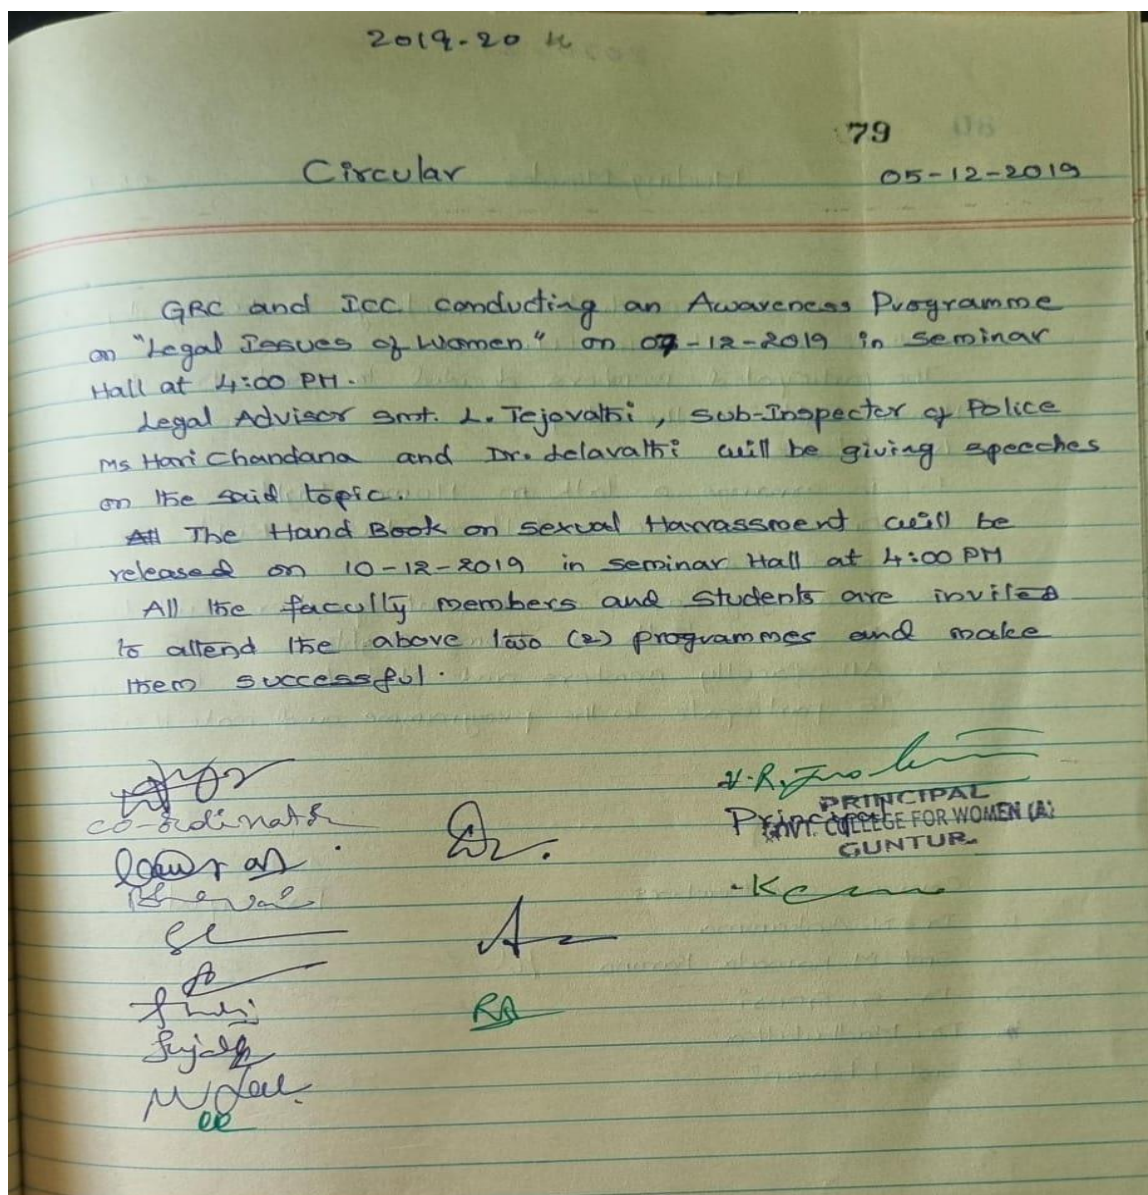 2019-20
79
Circular 05-12-2019
GRC and ICC conducting an Awareness Programme
on "Legal Issues of Women" on 07-12-2019 in seminar
Hall at 4:00 PM.
Legal Advisor Smt. L. Tejovathi, Sub-Inspector of Police
Ms Hari Chandana and Dr. Lelavathi will be giving speeches
on the said topic.
The Hand Book on Sexual Harrassment will be
released on 10-12-2019 in seminar Hall at 4:00 PM
All the faculty members and students are invited
to attend the above two (2) programmes and make
them successful.
co-ordinator
Principal
PRINCIPAL
GOVT. COLLEGE FOR WOMEN (A)
GUNTUR.
RA